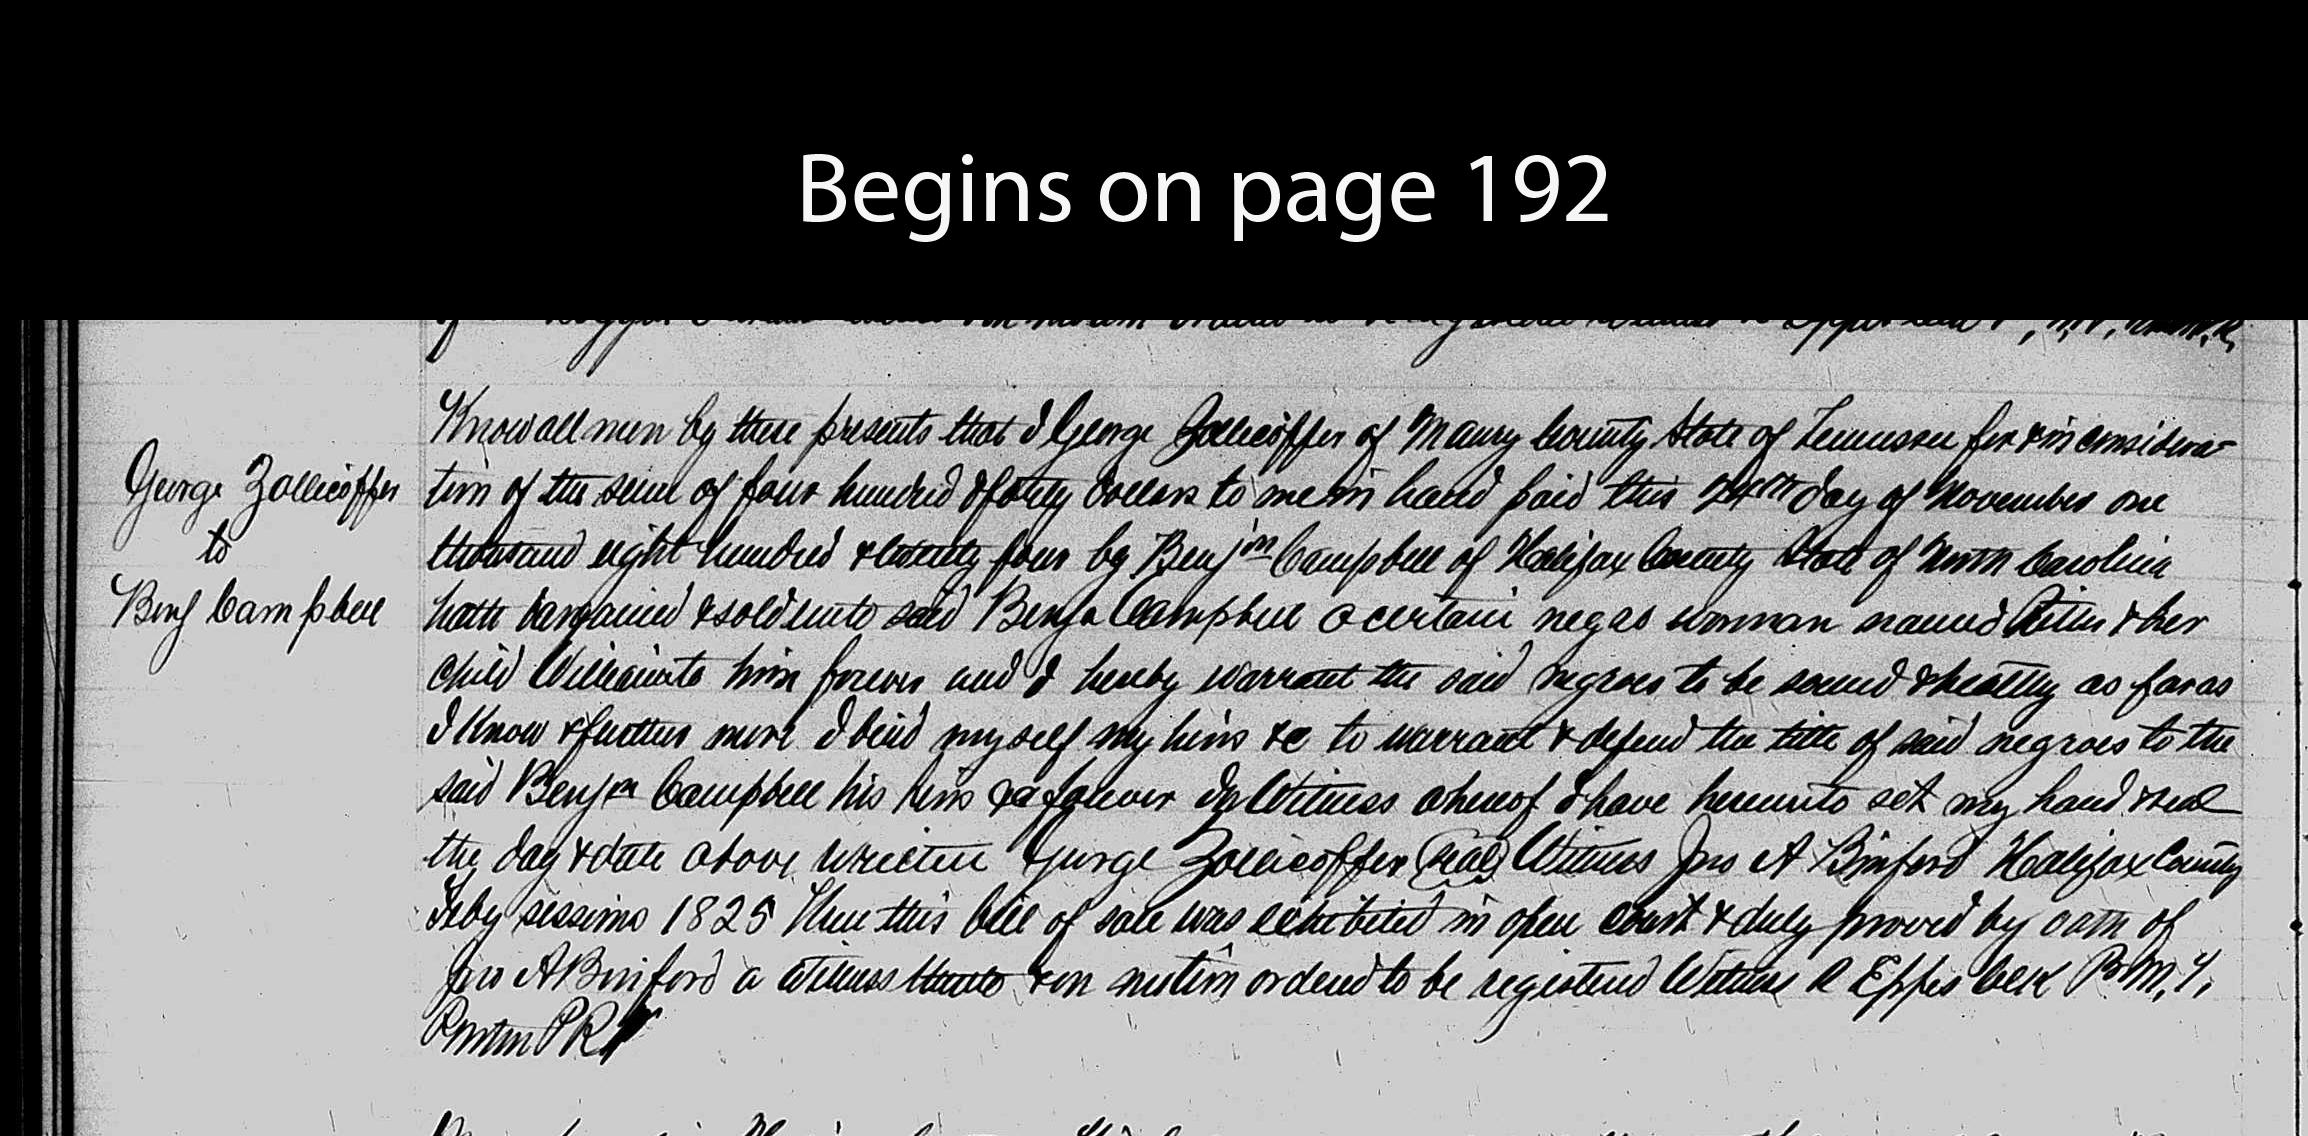 Begins on page 192
Know all men by these presents that I George Zollicoffer of Maury County State of Tennessee for & in considera-
George Zollicoffer
tion of the sum of four hundred & forty dollars to me in hand paid this day of November one
to
thousand eight hundred & twenty four by Benjin Campbell of Halifax County State of North Carolina
Benj Campbell
hath bargained & sold unto said Benja Campbell a certain negro woman named & her
child William to him forever and I hereby warrant the said negroes to be sound & healthy as far as
I know & further more I bind myself my heirs &c to warrant & defend the title of said negroes to the
said Benja Campbell his heirs &c forever In Witness whereof I have hereunto set my hand & seal
the day & date above written George Zollicoffer (seal) Witness Jno A Binford Halifax County
Feby sessions 1825 Then this bill of sale was exhibited in open court & duly proved by oath of
Jno A Binford a witness thereto & on motion ordered to be registered Witness R Eppes Clk
PR